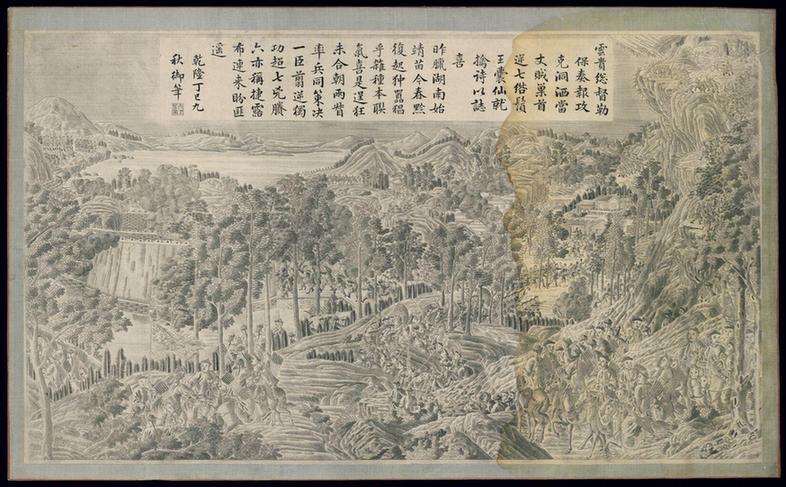 雲貴總督勒
保奏報攻
克洞洒當
丈賊巢首
逆七綹鬚
王囊仙就
擒詩以誌
喜
昨臘湖南始
靖苗今春黔
復起狆囂猖
乎雖種本聯
氣喜是逞狂
未合朝兩皆
率兵同策决
一臣翦逆獨
功超七
六亦稱捷露
布連来盼匪
遥
乾隆丁巳九
秋御筆